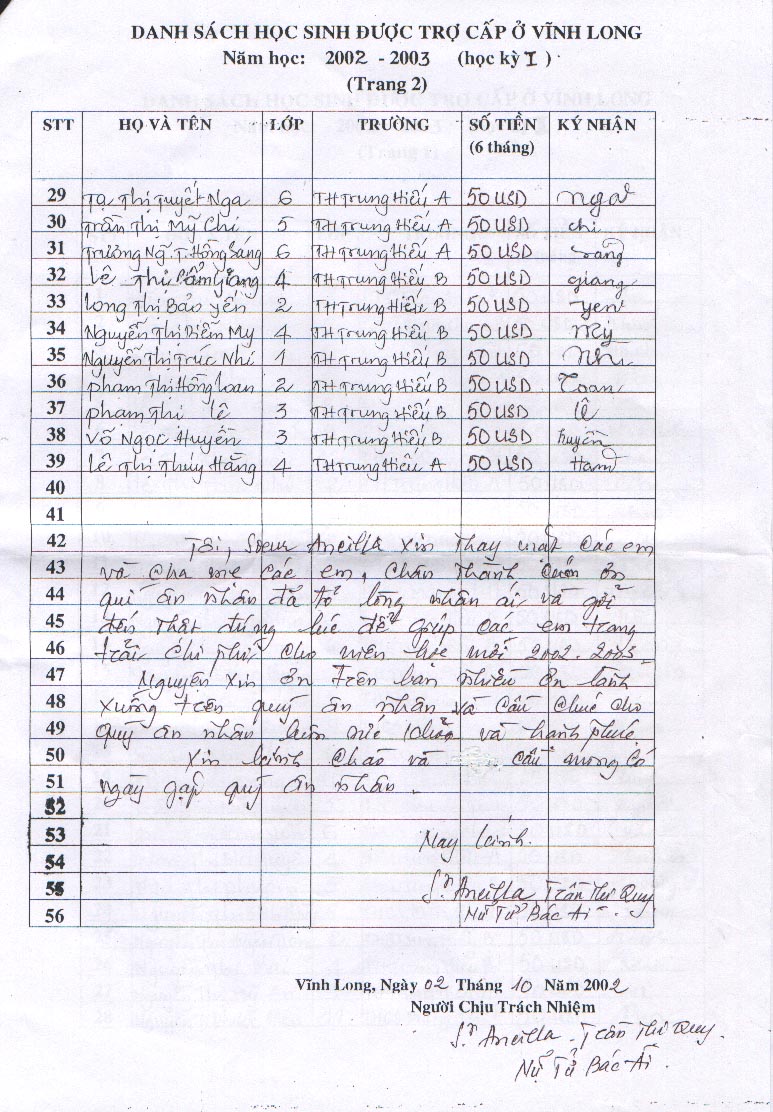 DANH SÁCH HỌC SINH ĐƯỢC TRỢ CẤP Ở VĨNH LONG
Năm học: 2002 - 2003 (học kỳ I )
(Trang 2)
STT HỌ VÀ TÊN LỚP TRƯỜNG SỐ TIỀN (6 tháng) KÝ NHẬN
29 Tạ Thị Tuyết Nga 6 TH Trung Hiếu A 50 USD nga
30 Trần Thị Mỹ Chi 5 TH Trung Hiếu A 50 USD chi
31 Trương Ng T. Hồng Sáng 6 TH Trung Hiếu A 50 USD sang
32 Lê Thị Cẩm Giang 4 TH Trung Hiếu B 50 USD giang
33 Long Thị Bảo yến 2 TH Trung Hiếu B 50 USD yen
34 Nguyễn Thị Diễm My 4 TH Trung Hiếu B 50 USD My
35 Nguyễn Thị Trúc Nhi 1 TH Trung Hiếu B 50 USD Nhi
36 phạm Thị Hồng Loan 2 TH Trung Hiếu B 50 USD Loan
37 phạm Thị lê 3 TH Trung Hiếu B 50 USD lê
38 Võ Ngọc Huyền 3 TH Trung Hiếu B 50 USD huyền
39 Lê Thị Thúy Hằng 4 TH Trung Hiếu A 50 USD
40
41
42 Tôi, Soeur Ancilla xin thay mặt các em
43 và cha mẹ các em, chân thành cám ơn
44 quí ân nhân đã tỏ lòng nhân ái và gởi
45 đến thật đúng lúc để giúp các em trang
46 trải chi phí cho niên học mới 2002. 2003.
47 Nguyện xin ơn trên ban nhiều ơn lành
48 xuống trên quý ân nhân và cầu chúc cho
49 quý ân nhân luôn sức khỏe và hạnh phúc
50 Xin kính chào và cầu mong có
51 ngày gặp quý ân nhân.
52
53 Nay kính.
54
55 Sr. Ancilla Trần Thị Quy
56 Nữ Tử Bác Ái
Vĩnh Long, Ngày 02 Tháng 10 Năm 2002
Người Chịu Trách Nhiệm
Sr. Ancilla. Trần Thị Quy.
Nữ Tử Bác Ái.